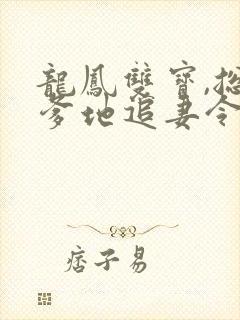 龍鳳雙寶,總
爹地追妻令
痞子易